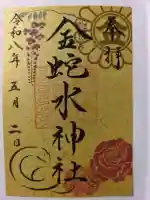 奉拝
金蛇水神社
令和八年五月二日